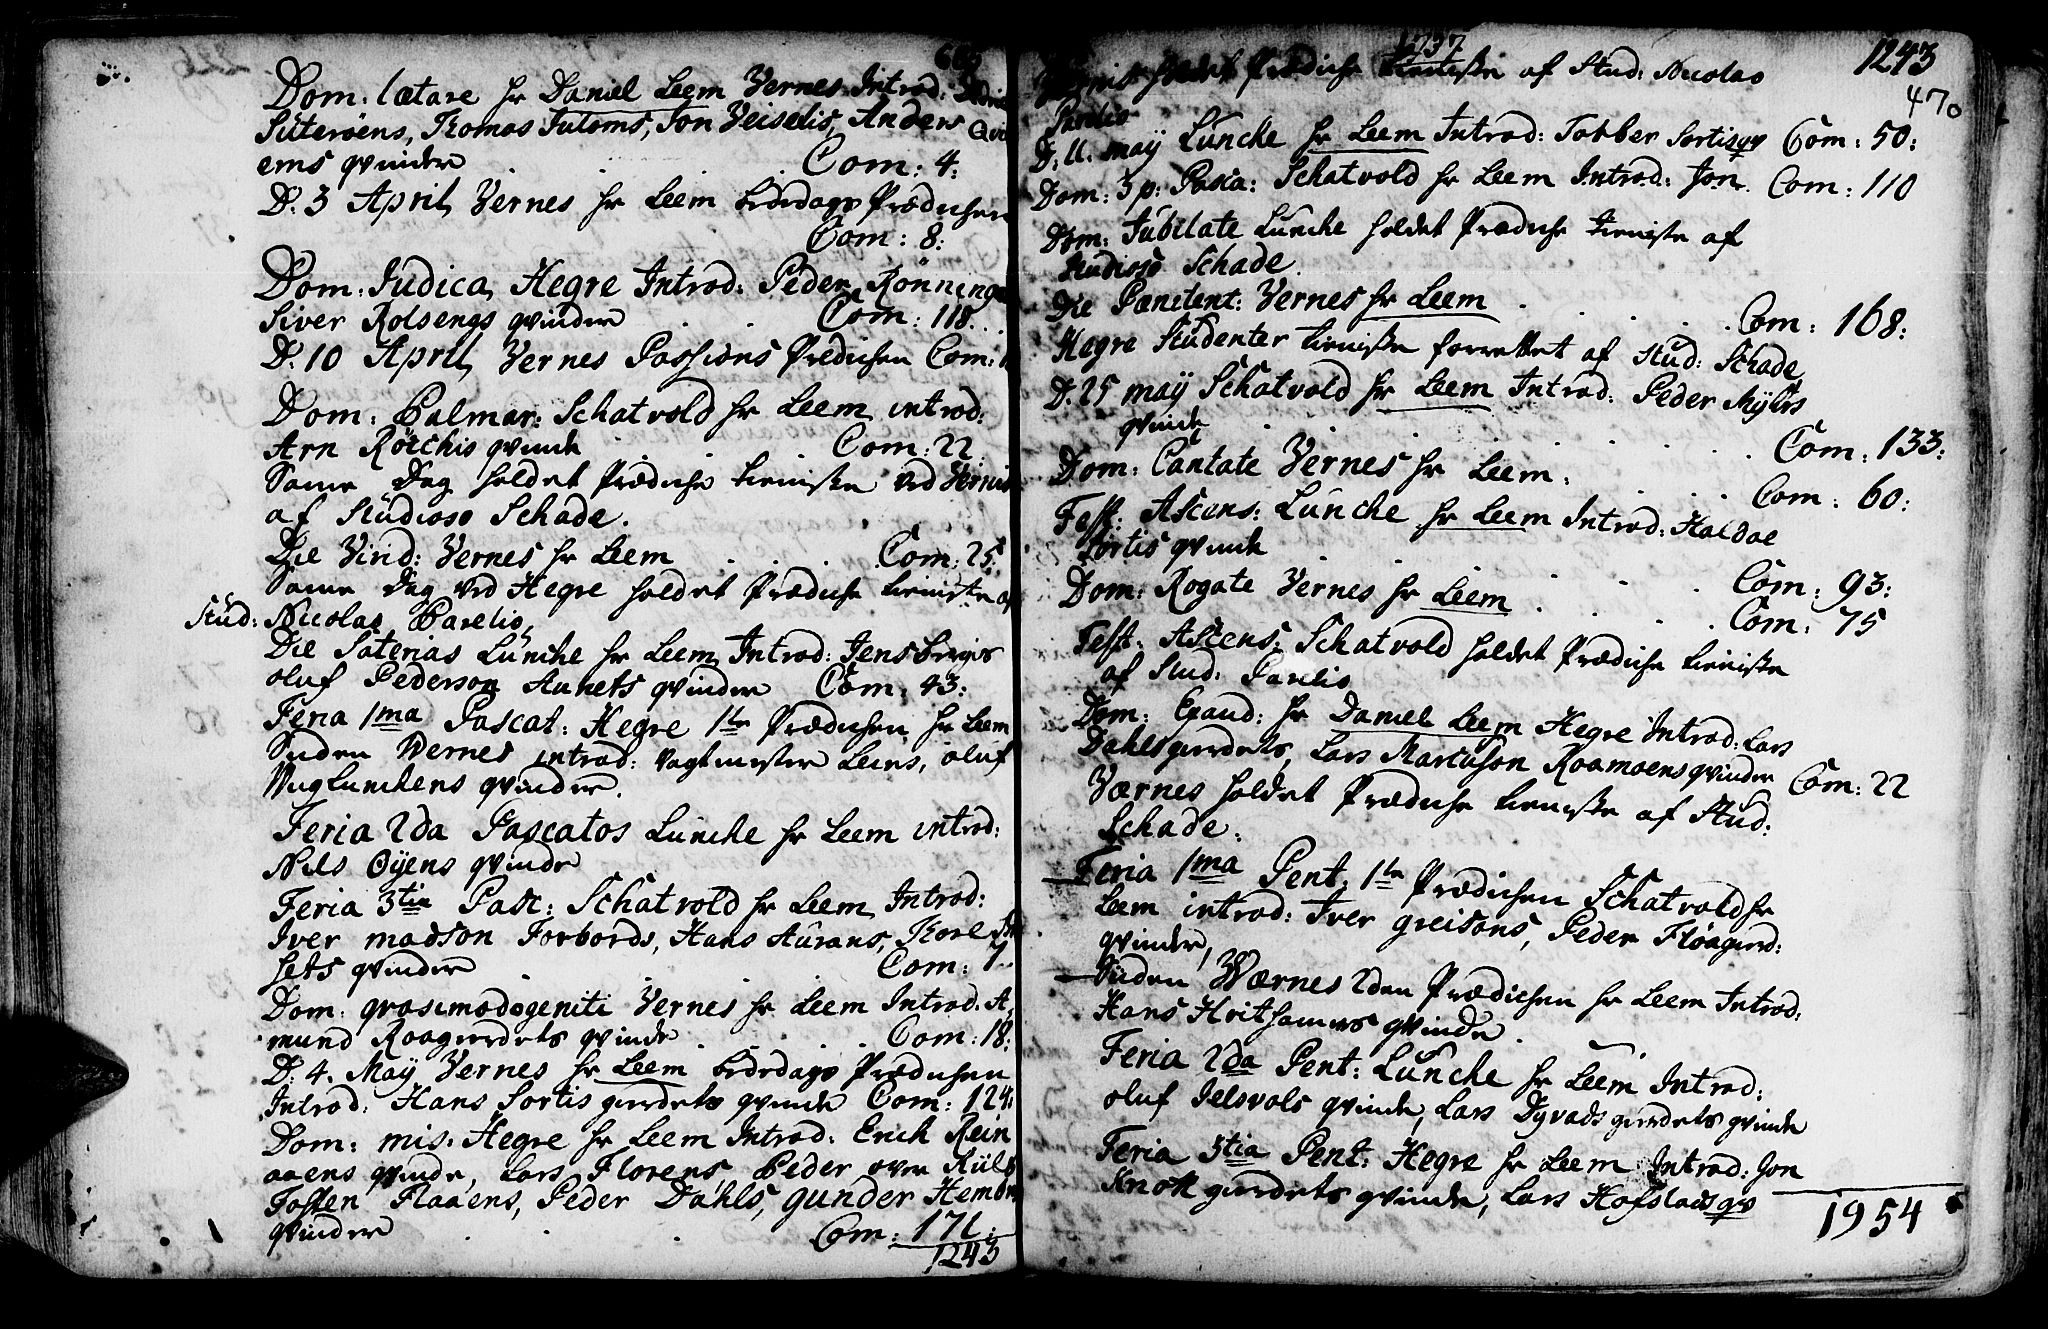 Dom: lætare hr Daniel Leem Vernes Introd:
Süterøens, Tomas Tutoms, Jon Veiselis, Anders
ems qvinder Com: 4:
D. 3 April Vernes hr Leem bededags Prædichen
Com: 8:
Dom: Judica, Hegre Introd: Peder Rönninge
Siver Rolsengs qvinder . . Com: 118. . .
D: 10 April, Vernes Passions Prædichen Com:
Dom: Palmar: Schatvold hr Leem introd:
Arn Röechis qvinde . Com: 22
Same Dag holdet Prædiche tieniste ved Vernis
af Studioso Schade.
Die Virid: Vernes hr Leem . . . Com: 25:
Same Dag ved Hegre holdet Prædiche tieniste af
Stud: Nicolao Parelio,
Die Saterias Lunche hr Leem Introd: Jens
oluf Pederson Aunets qvinder Com: 43:
Feria 1ma Pascat: Hegre 1te Prædichen hr Leem
Siden Wernes introd: Vagtmester Leins, oluf
Wuglunchens qvinder.
Feria 2da Pascatos Lunche hr Leem introd:
Nils Öÿens qvinde
Feria 3tia Pasc: Schatvold hr Leem Introd:
Iver madson Forbords, Hans Aurans, Tore
sets qvinder . . Com: 7
Dom: qvasimodogeniti Vernes hr Leem Introd: A,
mund Raagierdets qvinde . . . . Com: 18:
D: 4. Maÿ Vernes hr Leem bededags Prædichen
Introd: Hans Sortisgierdets qvinde Com: 124:
Dom: mis: Hegre hr Leem Introd: Erich Rein
aaens qvinde, Lars Florens, Peder over
Josten Flaaens, Peder Dahls, gunder
qvinder . . . Com: 171:
1243
1737
1243
470
holdet Prædiche tieniste af Stud: Nicolao
Parelio
D: 11. maÿ Lunche hr Leem Introd: Tobber Sortisqv Com: 50:
Dom: 3 p: Pasca: Schatvold hr Leem Introd: Jon. Com: 110
Dom: Jubilate Lunche holdet Prædiche tieniste af
Studioso Schade.
Die Pænitent: Vernes hr Leem . . . . Com: 168:
Hegre Studenter tieniste forrettet af Stud: Schade
D. 25 maÿ Schatvold hr Leem Introd: Peder Mÿhrs
qvinde . . . Com: 133:
Dom: Cantate Vernes hr Leem. . . Com: 60:
Fest: Ascens: Lunche hr Leem Introd: Haldoe
Sortis qvinde . . . Com: 93:
Dom: Rogate Vernes hr Leem . . . Com: 75
Fest: Ascens: Schatvold holdet Prædiche tieniste
af Stud: Parelio
Dom: Exaud: hr Daniel Leem Hegre Introd: Lars
Dahlsgierdets, Lars Marcuson Roamoensqvinder Com: 22
Værnes holdet Prædiche tieniste af Stud:
Schade.
Feria 1ma Pent: 1te Prædichen Schatvold hr
Leem introd: Iver greisons, Peder Fløagierd:
qvinder,
Siden Wærnes 2den Prædichen hr Leem Introd:
Hans qvinde.
Feria 2da Pent: Lunche hr Leem Introd:
oluf Ielsvols qvinde, Lars Dyvadsgierdets qvinde
Feria 3tia Pent: Hegre hr Leem Introd: Jon
Knottgierdets qvinde, Lars Hofstadsqv
1954